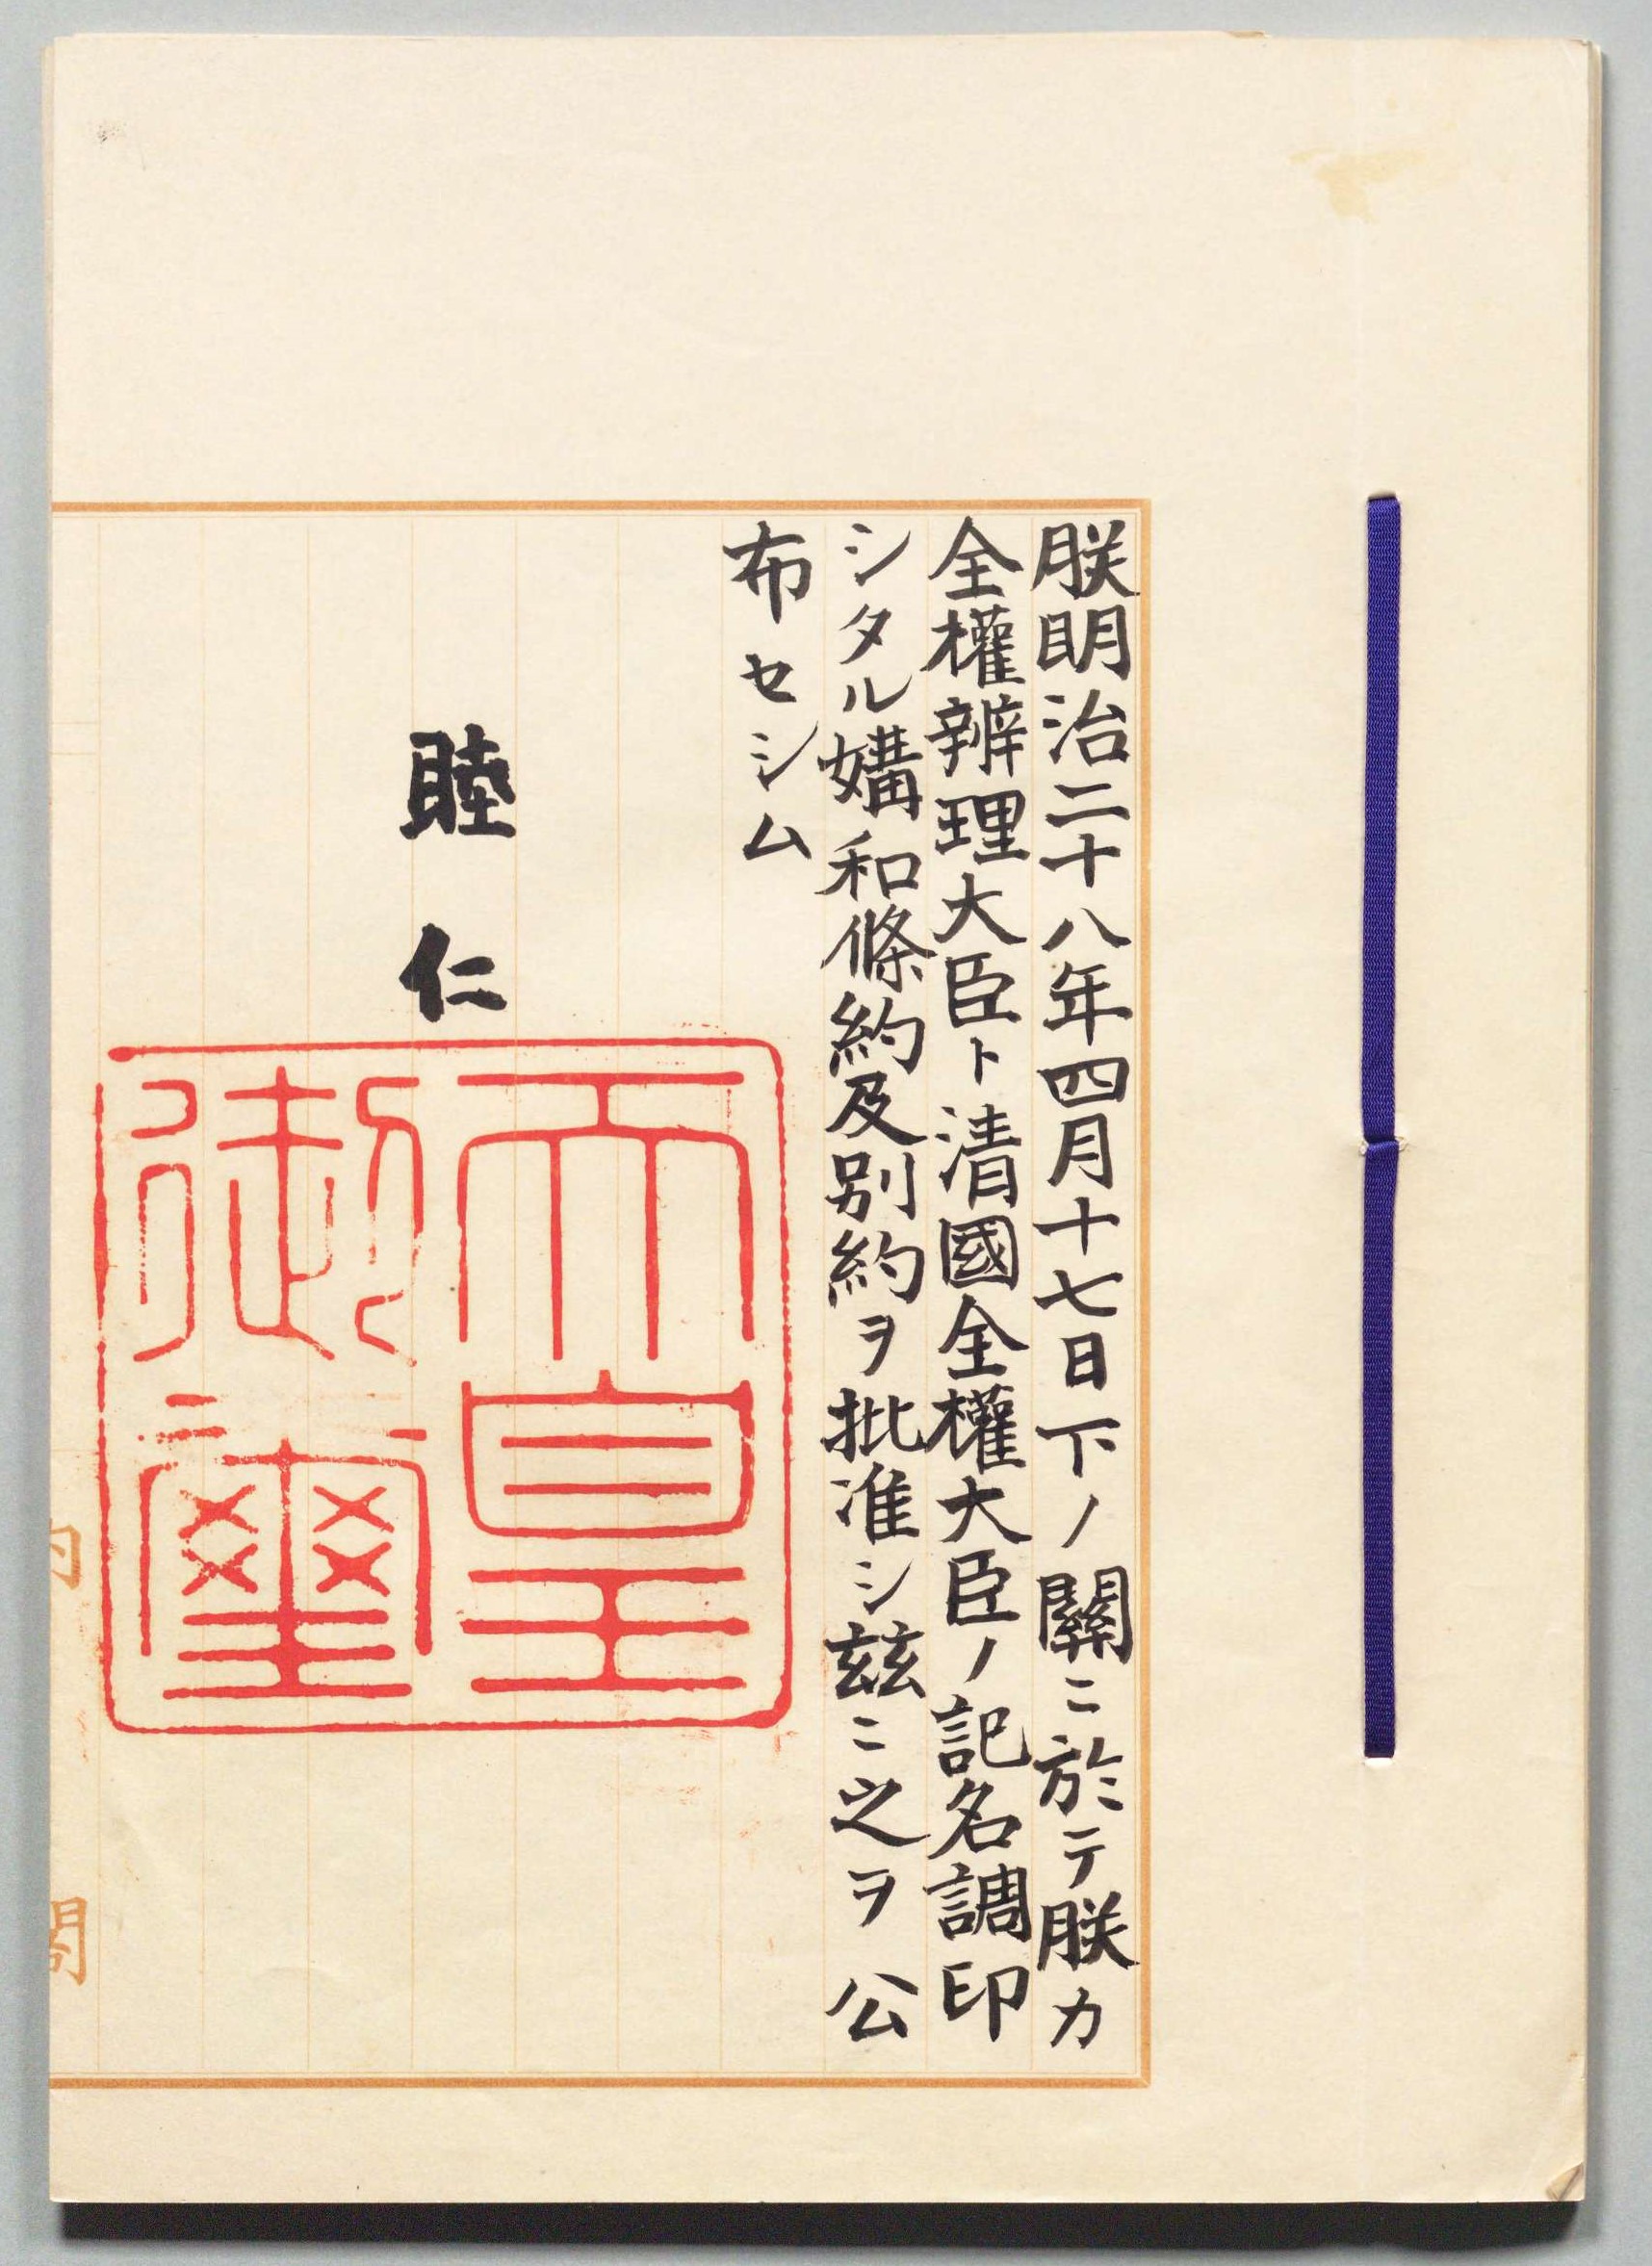 朕明治二十八年四月十七日下ノ關ニ於テ朕カ
全權辨理大臣ト清國全權大臣ノ記名調印
シタル媾和條約及別約ヲ批准シ玆ニ之ヲ公
布セシム
睦仁
天皇
御璽
內閣